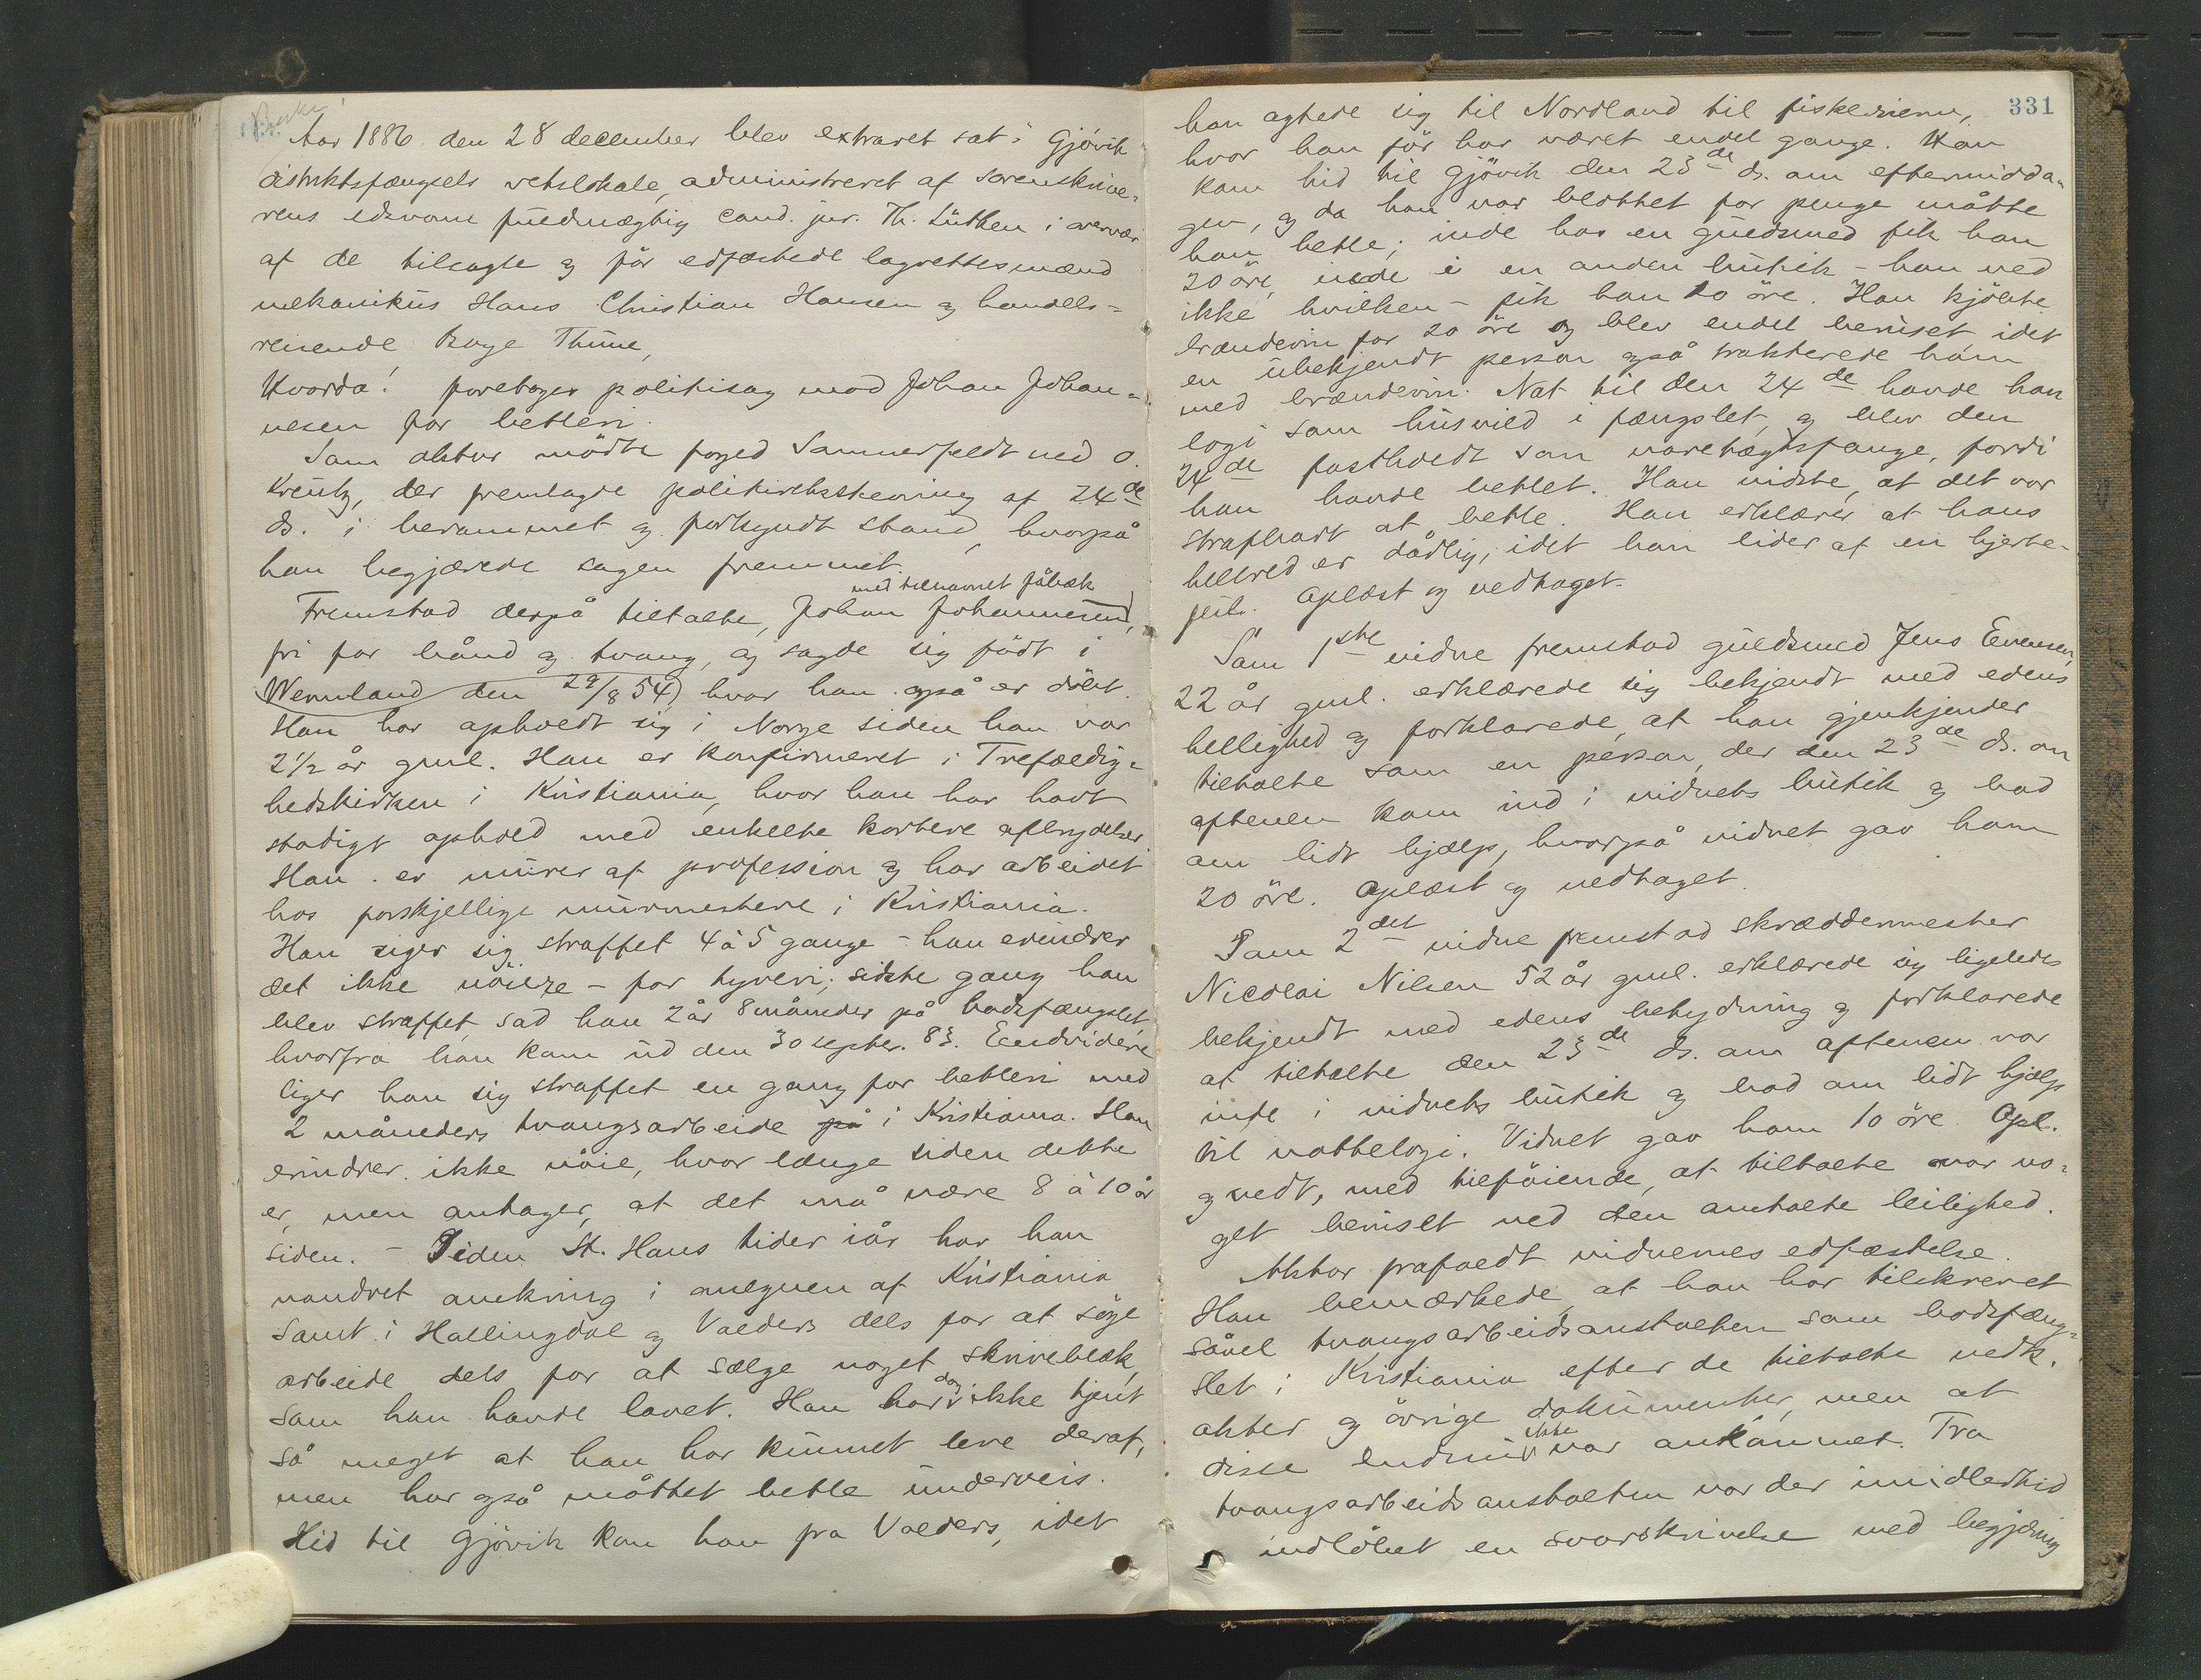 Aar 1886 den 28 december blev extraret sat i Gjövik
distriktsfængsels retslokale, administreret af sorenskrive-
rens edsvorne fuldmægtig cand. jur. Th. Lütken i overvær
af de tilsagte og før edfæstede lagrettesmænd
mekanikus Hans Christian Hansen og handels-
reisende Thune,
Hvorda! foretoges politisag mod Johan Johan-
nesen for betleri.
Som aktor mödte foged Sommerfeldt ved O.
Kreutz, der fremlagde politiretsstevning af 24de
ds. i berammet og forkyndt stand, hvorpå
han begjærede sagen fremmet.
med tilnavnet
Fremstod derpå tiltalte, Johan Johannesen,
fri for bånd og tvang, og sagde sig födt i
Wermland den 29/8 54) hvor han også er döbt.
Han har opholdt sig i Norge siden han var
2 1/2 år gml. Han er konfirmeret i Trefoldig-
hedskirken i Kristiania, hvor han har havt
stadigt ophold med enkelte kortere afbrydelser
Han er murer af profession og har arbeidet
hos forskjellige murmestere i Kristiania.
Han siger sig straffet 4 à 5 gange - han erindrer
det ikke nöiere - for tyveri; sidste gang han
blev straffet, sad han 2 år 8 måneder på bodsfængslet
hvorfra han kom ud den 30 septbr. 83. Endvidere
siger han sig straffet en gang for betleri med
2 måneders tvangsarbeide på i Kristiania. Han
erindrer ikke nöie, hvor længe siden dette
er, men antager, at det må være 8 à 10 år
siden. - Siden St. Hans tider iår har han
vandret omkring i omegnen af Kristiania
samt i Hallingdal og Valders dels for at söge
arbeide dels for at sælge noget skriveblæk,
som han havde lavet. Han har dog ikke tjent
så meget at han har kunnet leve deraf,
men har også måttet betle underveis.
Hid til Gjövik kom han fra Valders, idet
331
han agtede sig til Nordland til fiskerierne,
hvor han för har været endel gange. Han
kom hid til Gjövik den 23de ds. om eftermidda-
gen, og da han var blottet for penge måtte
han betle; inde hos en guldsmed fik han
20 öre, inde i en anden butik - han ved
ikke hvilken - fik han 10 öre. Han kjöbte
brændevin for 20 öre og blev endel beruset idet
en ubekjendt person også trakterede ham
med brændevin. Nat til den 24de havde han
logi som husvild i fængslet, og blev den
24de fastholdt som varetægtsfange, fordi
han havde betlet. Han vidste, at det var
strafbart at betle. Han erklærer at hans
helbred er dårlig, idet han lider af en hjerte-
feil. Oplæst og vedtaget.
Som 1ste vidne fremstod guldsmed Jens Evensen,
22 år gml. erklærede sig bekjendt med edens
hellighed og forklarede, at han gjenkjender
tiltalte som en person, der den 23de ds. om
aftenen kom ind i vidnets butik og bad
om lidt hjælp, hvorpå vidnet gav ham
20 öre. Oplæst og vedtaget.
Som 2det vidne fremstod skræddermester
Nicolai Nilsen 52 år gml. erklærede sig ligeledes
bekjendt med edens betydning og forklarede
at tiltalte den 23de ds. om aftenen var
inde i vidnets butik og bad om lidt hjælp
til natteloge. Vidnet gav ham 10 öre. Opl.
og vedt., med tilföiende, at tiltalte var no-
get beruset ved den omtalte leilighed.
Aktor frafaldt vidnernes edfæstelse.
Han bemærkede, at han har tilskrevet
såvel tvangsarbeidsanstalten som bodsfæng-
slet i Kristiania efter de tiltalte vedk.
akter og övrige dokumenter, men at
disse endnu ikke var ankommet. Fra
tvangsarbeidsanstalten var der imidlertid
indlöbet en svarskrivelse med begjæring